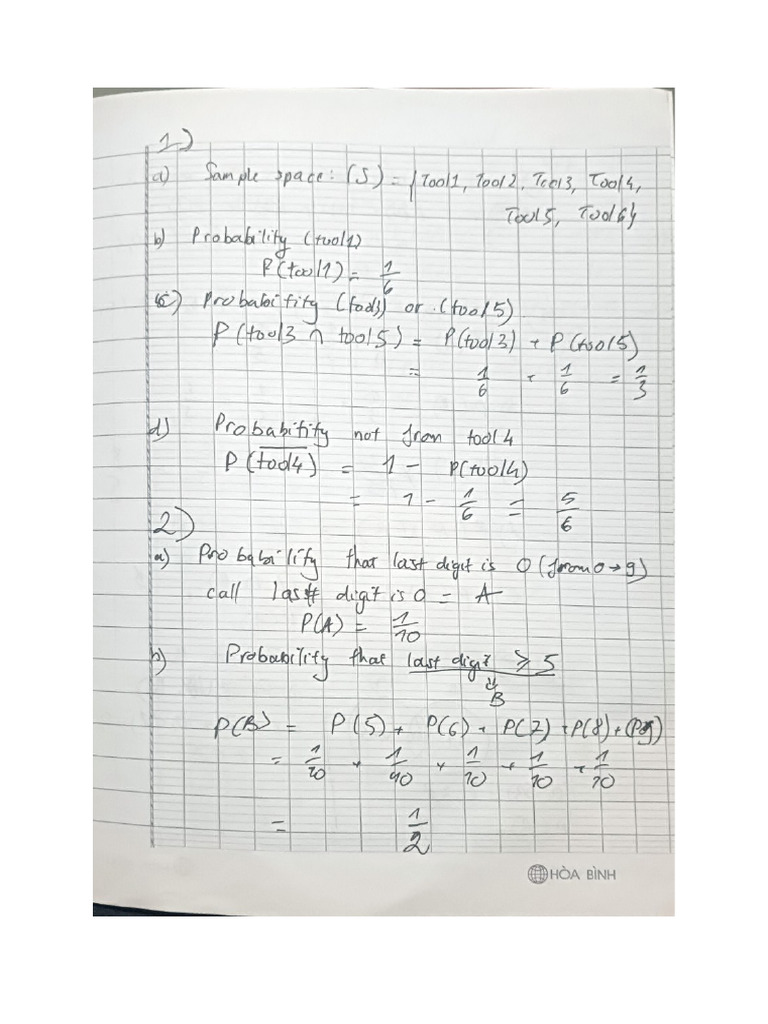 1)
a) Sample space: (S) = {Tool1, Tool2, Tool3, Tool4,
Tool5, Tool6}
b) Probability (tool1)
P(tool1) = 1/6
c) Probability (tool3) or (tool5)
P(tool3 ∩ tool5) = P(tool3) + P(tool5)
= 1/6 + 1/6 = 1/3
d) Probability not from tool4
P(\overline{tool4}) = 1 - P(tool4)
= 1 - 1/6 = 5/6
2)
a) Probability that last digit is 0 (from 0 → 9)
call last digit is 0 = A
P(A) = 1/10
b) Probability that last digit ⩾ 5
⇓
B
P(B) = P(5) + P(6) + P(7) + P(8) + (P9)
= 1/10 + 1/10 + 1/10 + 1/10 + 1/10
= 1/2
HÒA BÌNH